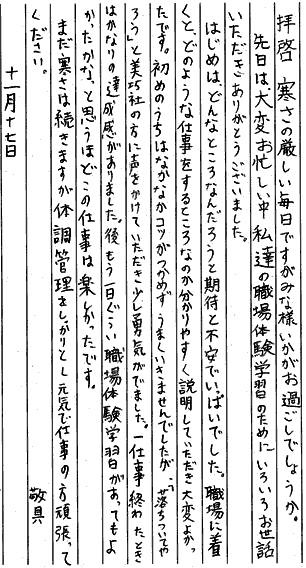 拝啓 寒さの厳しい毎日ですがみな様いかがお過ごしでしょうか。
先日は、大変お忙しい中 私達の職場体験学習のためにいろいろお世話
いただきありがとうございました。
はじめは、どんなところなんだろうと期待と不安でいっぱいでした。職場に着
くと、どのような仕事をするところなのか分かりやすく説明していただき大変よかっ
たです。初めのうちはなかなかコツがつかめず うまくいきませんでしたが、「落ちついてや
ろう」と美巧社の方に声をかけていただき少し勇気がでました。一仕事終わったとき
はかなりの達成感がありました。後もう一日ぐらい職場体験学習があってもよ
かったかな、と思うほどこの仕事は楽しかったです。
まだ寒さは続きますが体調管理をしっかりとし元気で仕事の方頑張って
ください。
敬具
十一月十七日